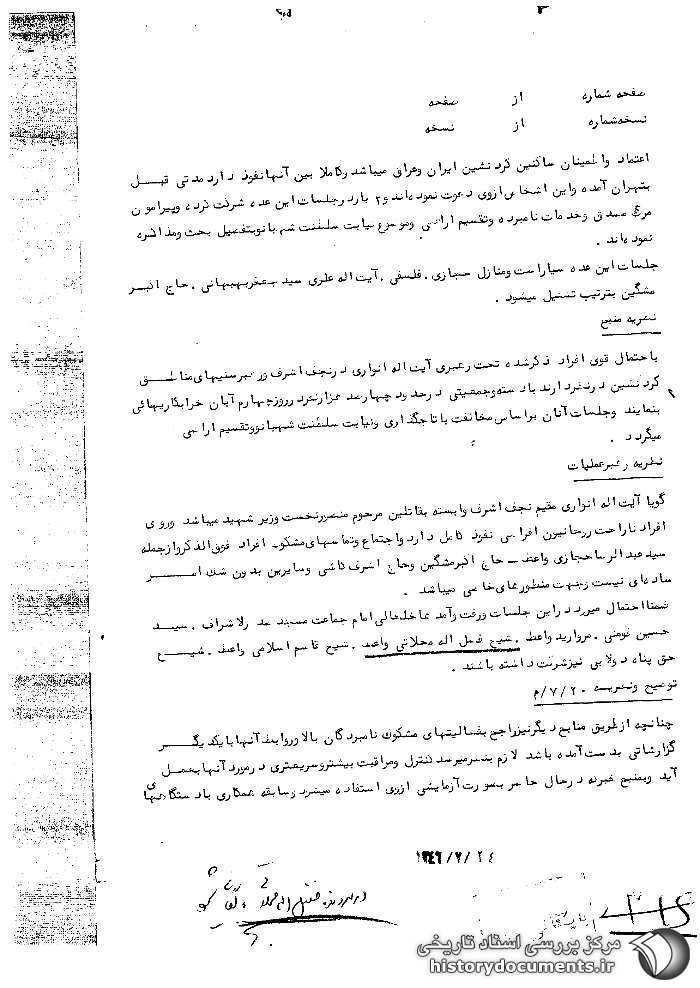 صفحه شماره از صفحه
نسخه شماره از نسخه
اعتماد و اطمینان ساکنین کرد نشین ایران و عراق میباشد و کاملا بین آنها نفوذ دارد مدتی قبل
بتهران آمده و این اشخاص از وی دعوت نموده‌اند و ۲ بار در جلسات این عده شرکت کرده و پیرامون
مرگ مصدق و خدمات نامبرده و تقسیم اراضی و موضوع نیابت سلطنت شهبانو بتفصیل بحث و مذاکره
نموده‌اند .
جلسات این عده سیار است و منازل حجازی . فلسفی . آیت اله علوی سید جعفر بهبهانی . حاج اکبر
مشگین بترتیب تشکیل میشود .
نظریه منبع
باحتمال قوی افراد ذکر شده تحت رهبری آیت اله انواری در نجف اشرف و رهبر سنیهای مناطق
کرد نشین در نظر دارند با دسته و جمعیتی در حدود چهارصد هزار نفر در روز چهارم آبان خرابکاریهائی
بنمایند و جلسات آنان بر اساس مخالفت با تاجگذاری و نیابت سلطنت شهبانو و تقسیم اراضی
میگردد .
نظریه رهبر عملیات
گویا آیت اله انواری مقیم نجف اشرف وابسته بقاتلین مرحوم منصور نخست وزیر شهید میباشد و روی
افراد ناراحت روحانیون افراطی نفوذ کامل دارد و اجتماع و تماسهای مشکوک افراد فوق الذکر و از جمله
سید عبدالرضا حجازی واعظ - حاج اکبر مشگین و حاج اشرف کاشی و سایرین بدون شک امر
ساده‌ای نیست و بجهت منظورهای خاصی میباشد .
ضمنا احتمال میرود در این جلسات و رفت و آمدها خلخالی امام جماعت مسجد اشراف . سید
حسین . مروارید واعظ . شیخ فضل اله محلاتی واعظ . شیخ قاسم اسلامی واعظ . شیخ
حق پناه دولابی نیز شرکت داشته باشند .
توضیح و نظریه ۲۰/۷/م
چنانچه از طریق منابع دیگر نیز راجع بفعالیتهای مشکوک نامبردگان بالا و روابط آنها با یکدیگر
گزارشاتی بدست آمده باشد لازم بنظر میرسد کنترل و مراقبت بیشتر و سریعتری در مورد آنها بعمل
آید و بمنبع خبر که در حال حاضر بصورت آزمایشی از وی استفاده میشود و سابقه همکاری با دستگاههای
۱۳۴۶/۷/۲۴
مرکز بررسی اسناد تاریخی
historydocuments.ir